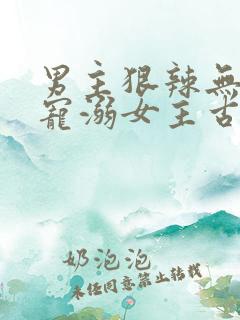 男主狠辣無
寵溺女主古
奶泡泡
未经同意禁止转载